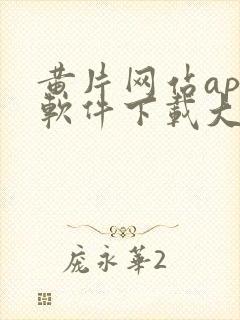 黄片网佔ap
軟件下載大
庞永華2